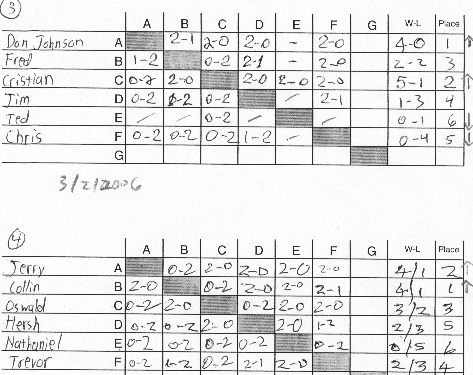 3
A B C D E F G W-L Place
Don Johnson A 2-1 2-0 2-0 - 2-0 4-0 1 ↑
Fred B 1-2 0-2 2-1 - 2-0 2-2 3
Cristian C 0-2 2-0 2-0 2-0 2-0 5-1 2 ↑
Jim D 0-2 0-2 / 2-1 1-3 4
Ted E / / 0-2 / / 0-1 6 ↓
Chris F 0-2 0-2 0-2 1-2 - 0-4 5 ↓
G
3/2/2006
4
A B C D E F G W-L Place
Jerry A 0-2 2-0 2-0 2-0 2-0 4/1 2 ↑
Collin B 2-0 0-2 2-0 2-0 2-1 4/1 1 ↑
Oswald C 0-2 2-0 0-2 2-0 2-0 3/2 3
Hersh D 0-2 0-2 2-0 2-0 1-2 2/3 5
Nathaniel E 0-2 0-2 0-2 0-2 0-2 0/5 6
Trevor F 0-2 1-2 0-2 2-1 2-0 2/3 4